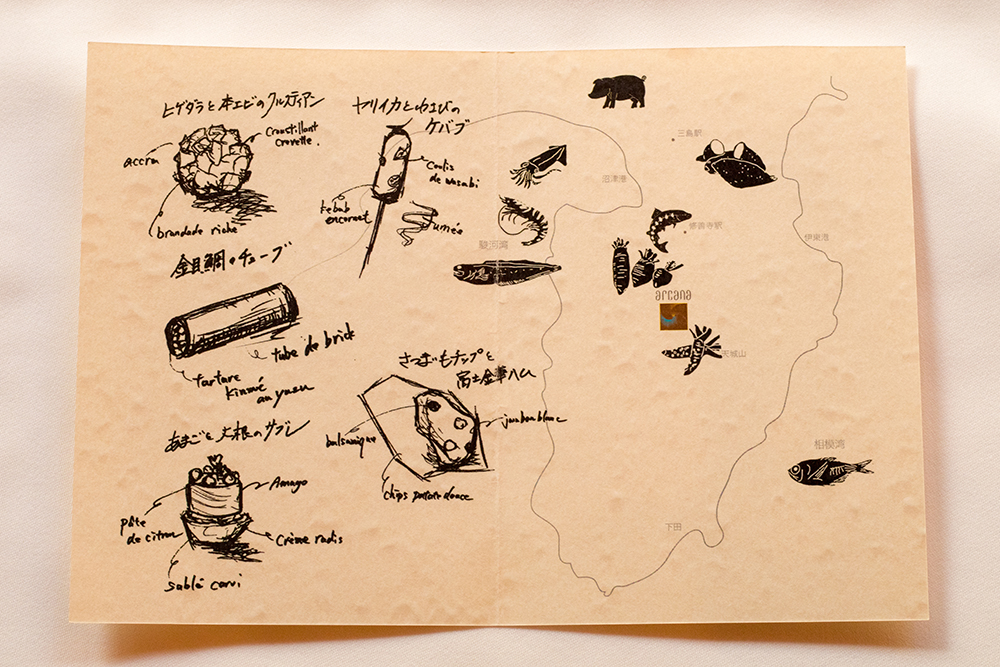 ヒゲダラと本エビのクルスティアン
accra
Croustillant
crevette.
brandade riche
ヤリイカとわさびの
ケバブ
Coulis
de wasabi
kebab
encornet
fumée
金目鯛のチューブ
tube de brick
tartare
kinmé
au yuzu
さつまいもチップと
富士金華ハム
balsamique
jambon blanc
chips patate douce
あまごと大根のサブレ
Amago
pâte
de citron
Crème radis
sablé carvi
三島駅
沼津港
修善寺駅
駿河湾
伊東港
arcana
天城山
相模湾
下田